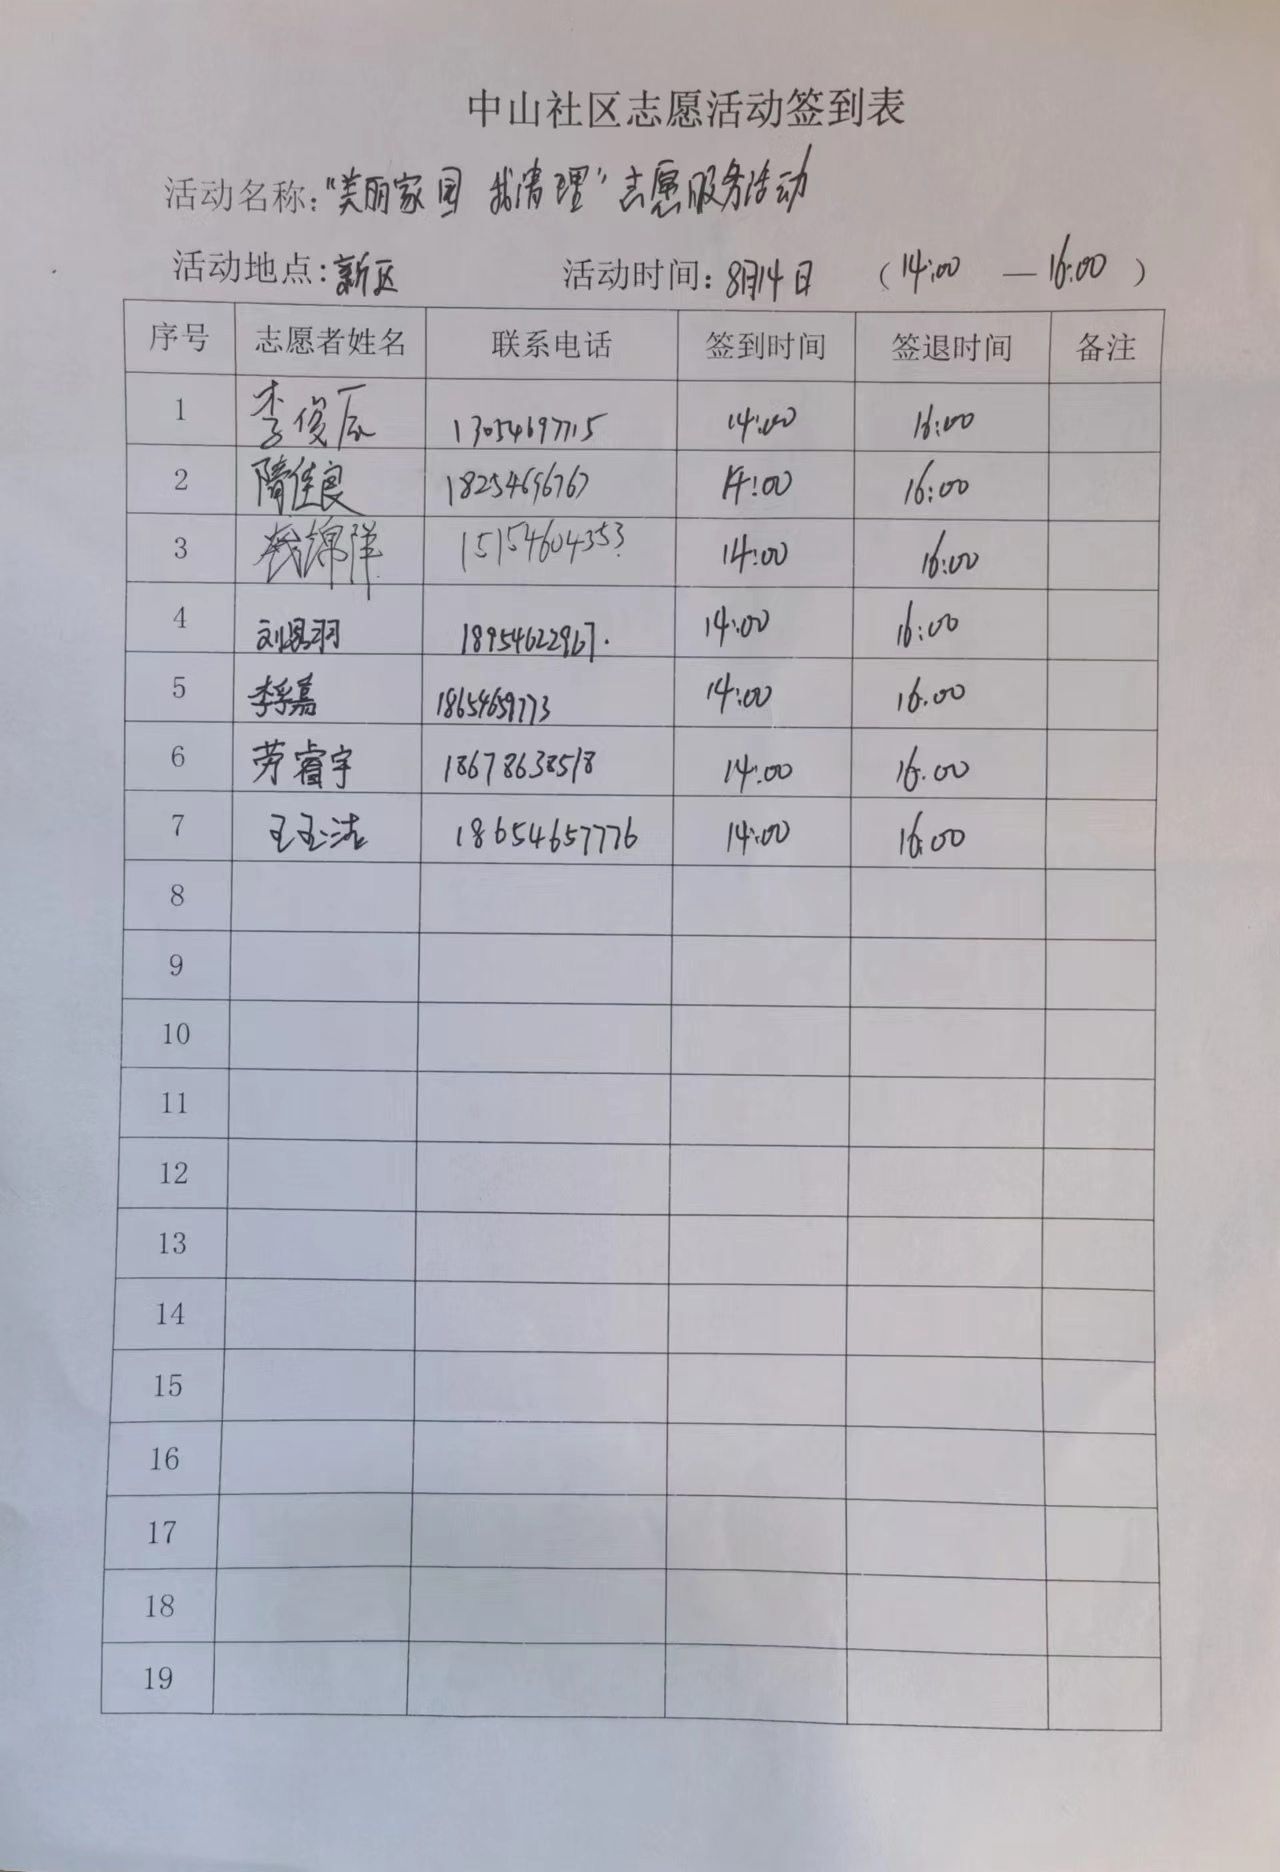 中山社区志愿活动签到表
活动名称:“美丽家园 我清理”志愿服务活动
活动地点:新区 活动时间:8月14日 (14:00 — 16:00)
序号 志愿者姓名 联系电话 签到时间 签退时间 备注
1 李俊辰 13054697715 14:00 16:00
2 隋佳良 18254696767 14:00 16:00
3 锦洋 15154604353 14:00 16:00
4 刘羽 18954622967. 14:00 16:00
5 李嘉 18654659773 14:00 16.00
6 劳睿宇 18678638518 14:00 16.00
7 王玉洁 18654657776 14:00 16:00
8
9
10
11
12
13
14
15
16
17
18
19